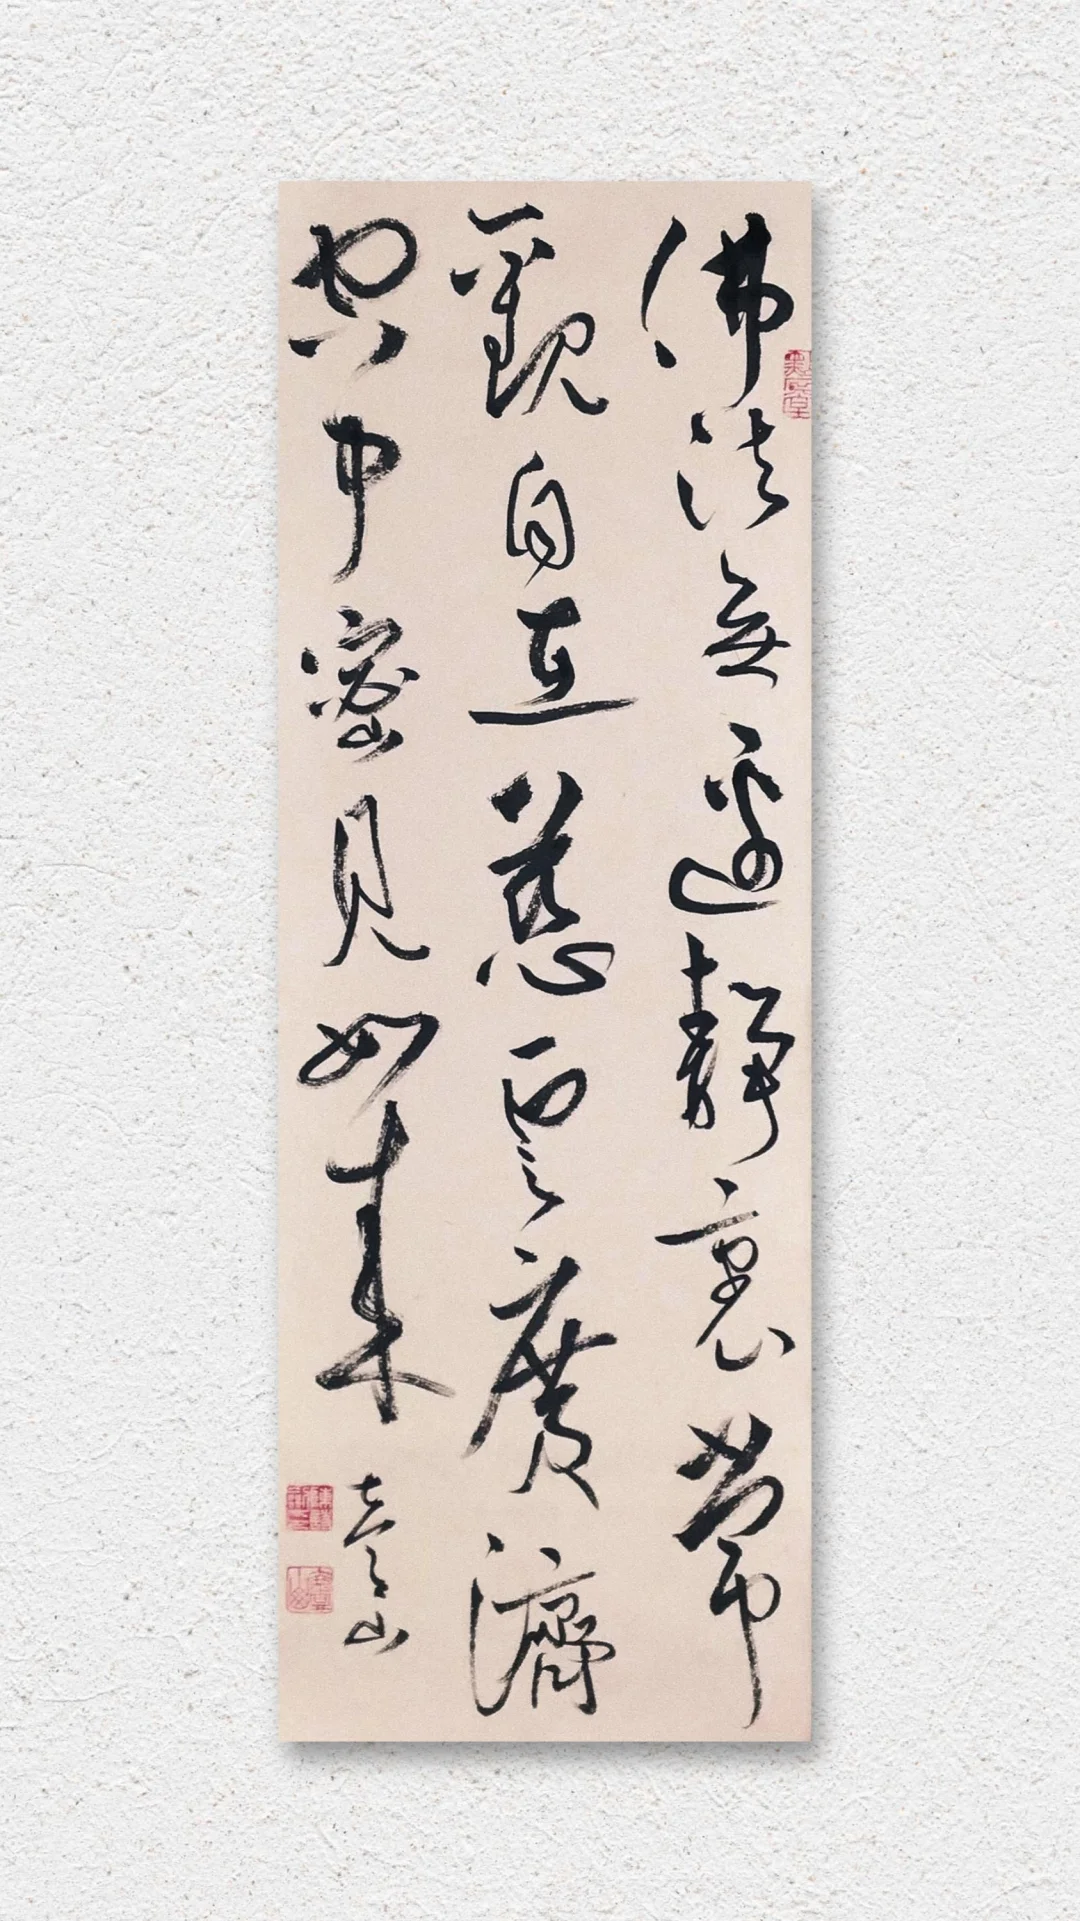 佛法無邊靜裏常
觀自在慈雲廣濟
空中密見如來
山